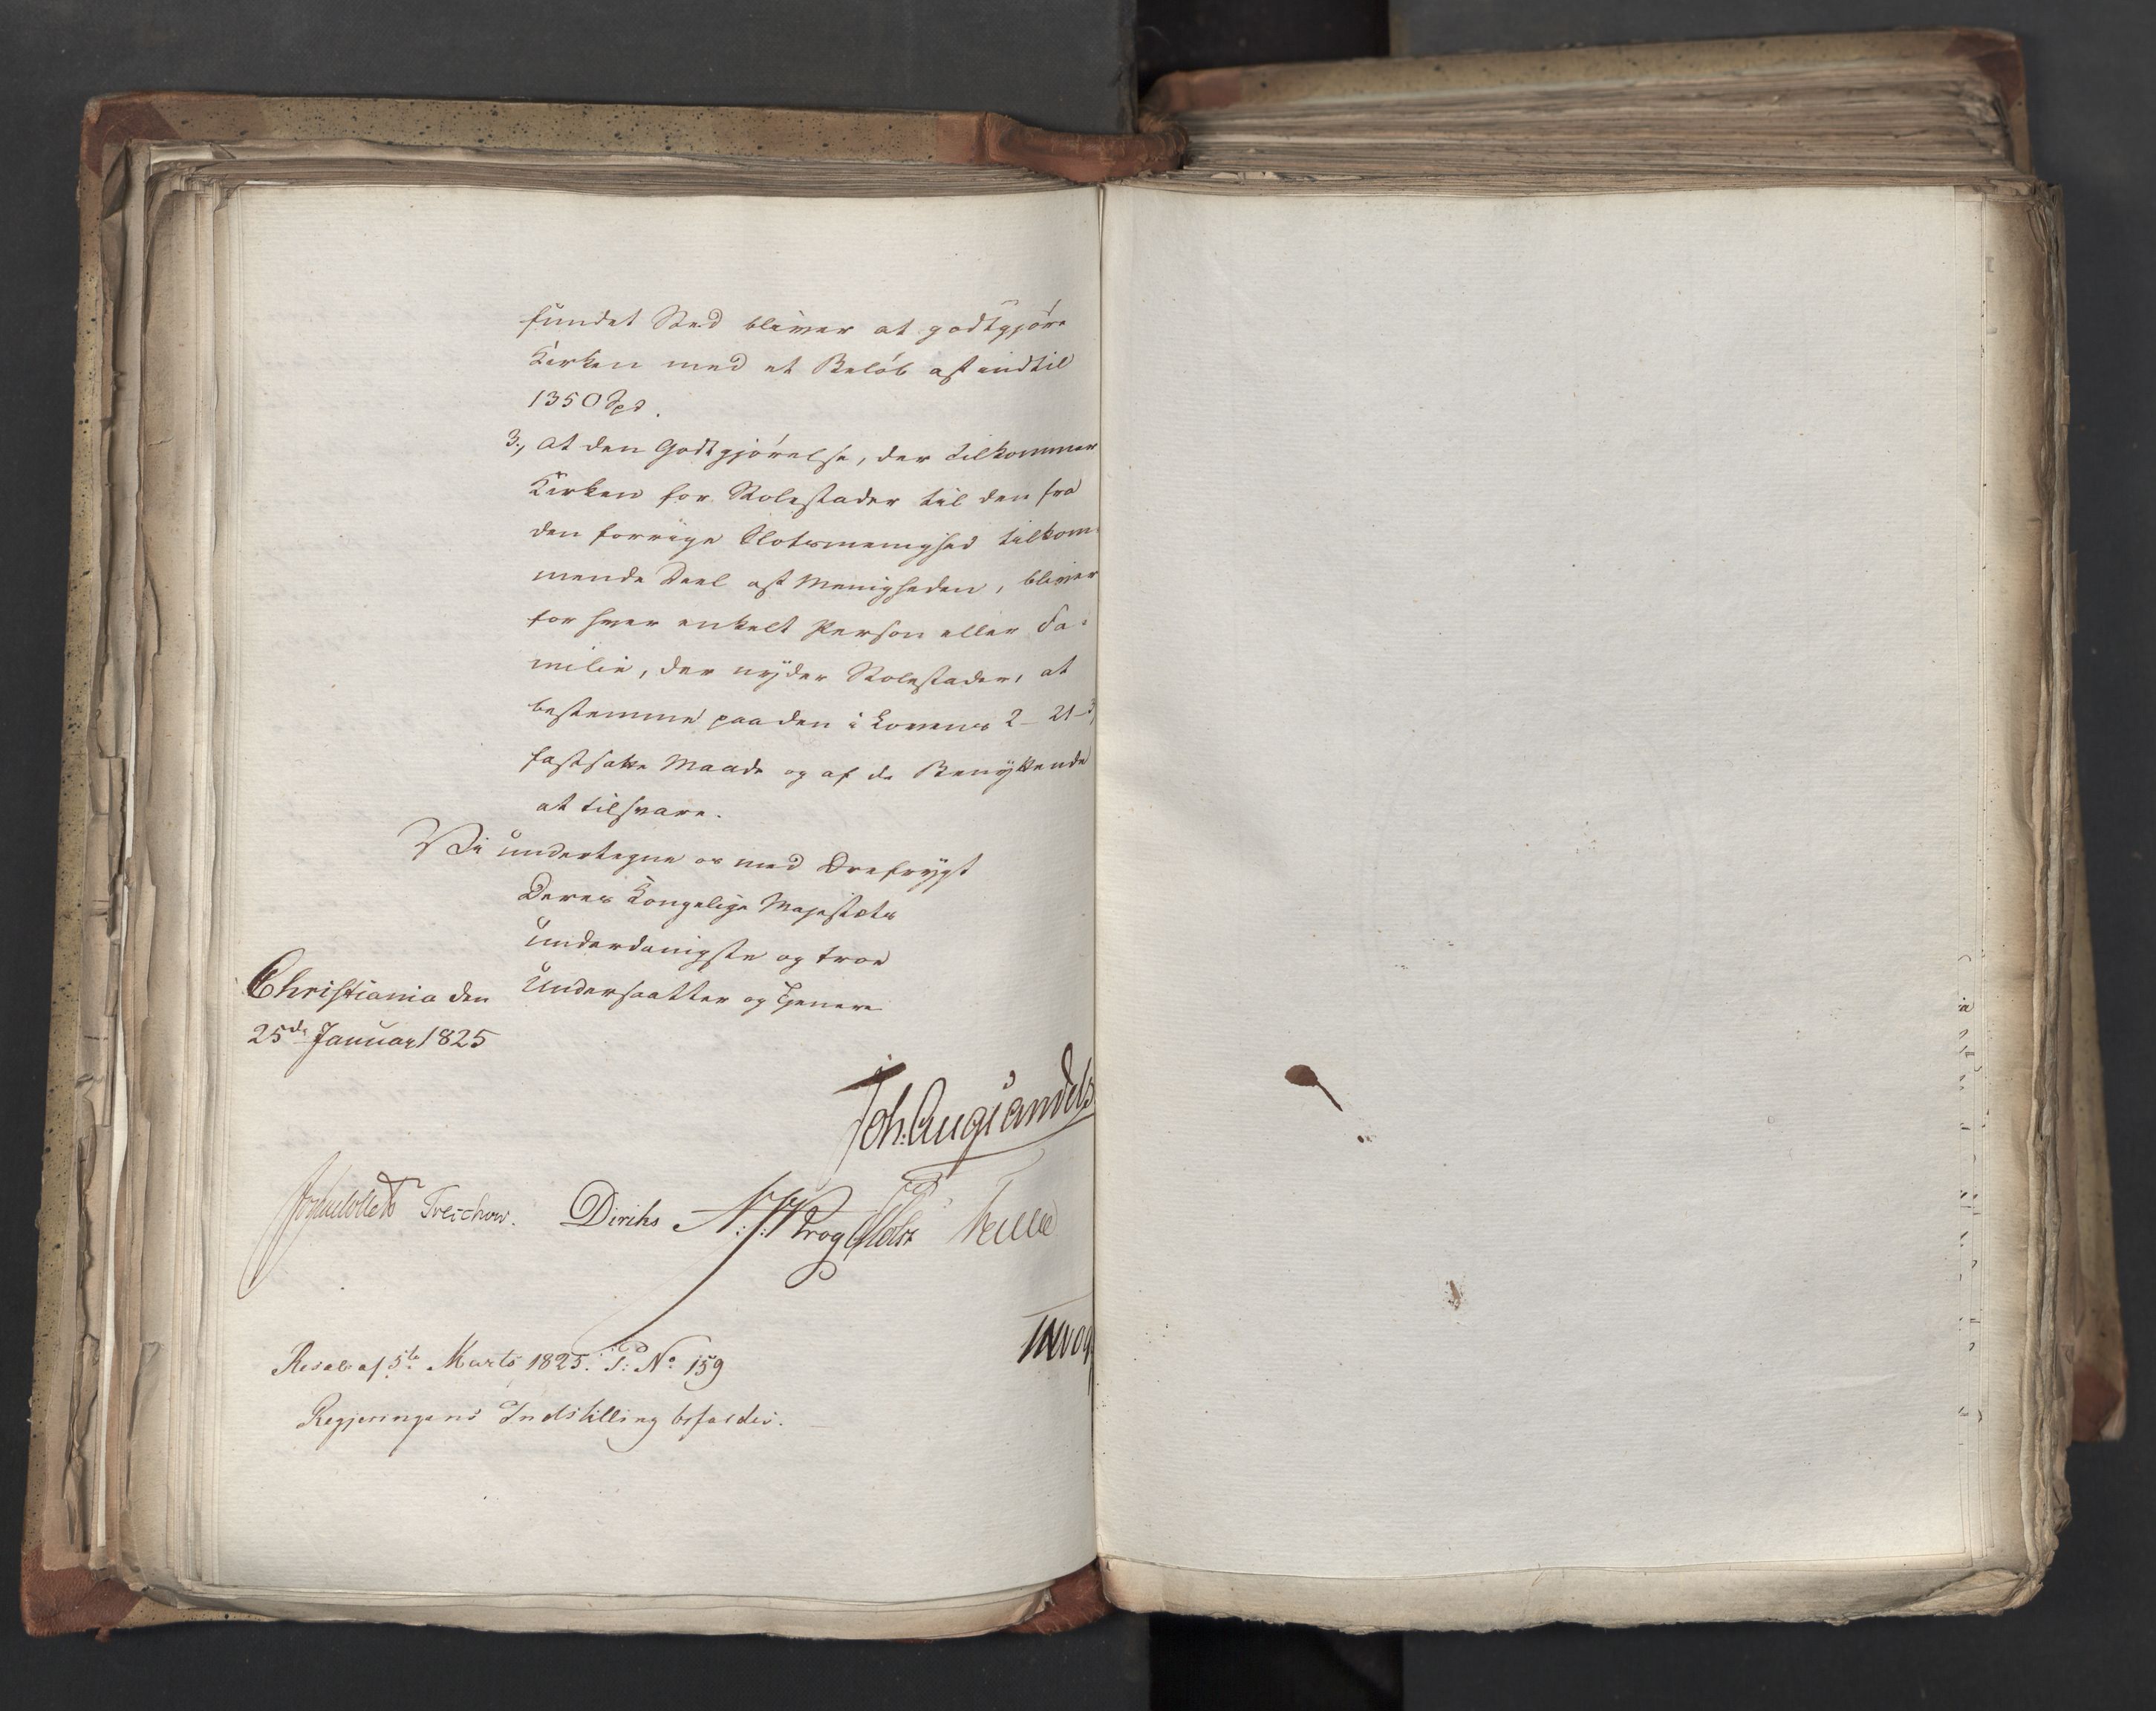 fundet Sted bliver at godtgjøre
Kirken med et Beløb af indtil
1350 Spd.
3., at den Godtgjørelse, der tilkommer
Kirken for Stolestader til den fra
den forrige Slotsmenighed tilkom-
mende Deel af Menigheden, bliver
for hver enkelt Person eller Fa-
milie, der nyder Stolestader, at
bestemme paa den i Lovens 2-21-3,
fastsatte Maade og af de Benyttende
at tilsvare.
Vi undertegne os med Ærefrygt
Deres Kongelige Majestæts
underdanigste og troe
Undersaatter og Tjenere
Christiania den
25de Januar 1825
Joh: Aug: Sandels
Jonas Collett Treschow. Diriks N: J: Krog Holst
Resol: af 5te Marts 1825. P: No 159
Regjeringens Indstilling bifaldes.